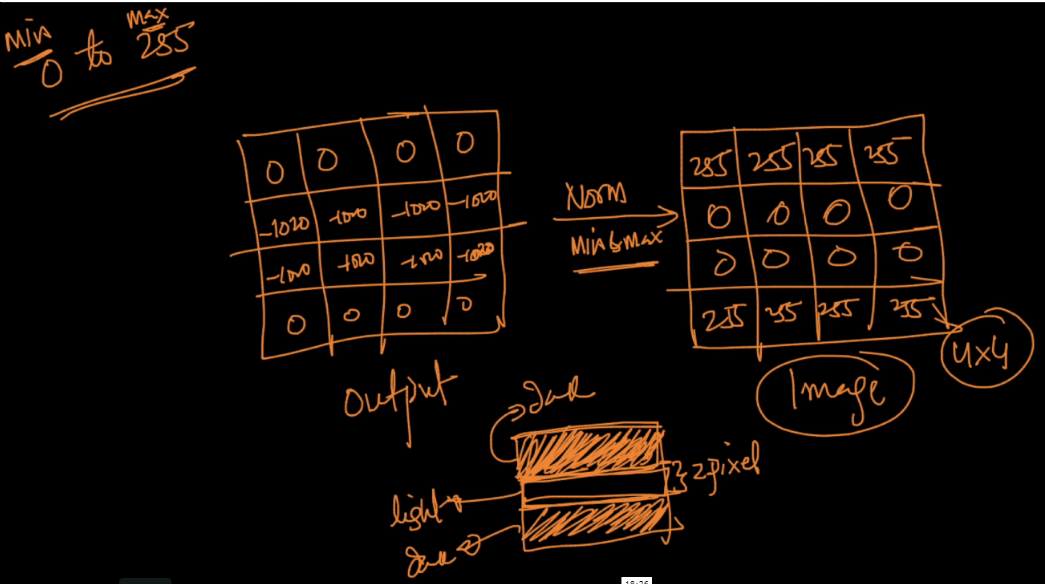 Min
max
0 to 255
0 0 0 0
-1020 -1020 -1020 -1020
-1020 -1020 -1020 -1020
0 0 0 0
Output
Norm
Min & max
255 255 255 255
0 0 0 0
0 0 0 0
255 255 255 255
4x4
Image
dark
2 pixel
light
dark